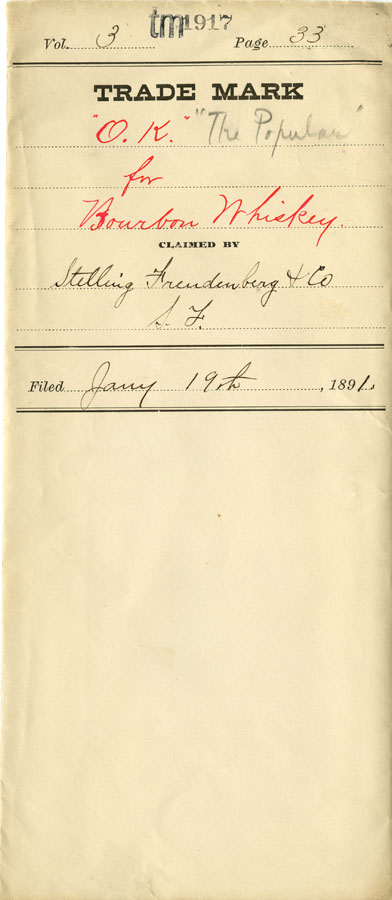 tm1917
Vol. 3 Page 33
TRADE MARK
"O. K." "The Popular"
for
Bourbon Whiskey.
CLAIMED BY
Stelling Freudenberg & Co
S. F.
Filed Jany 19th, 1891.